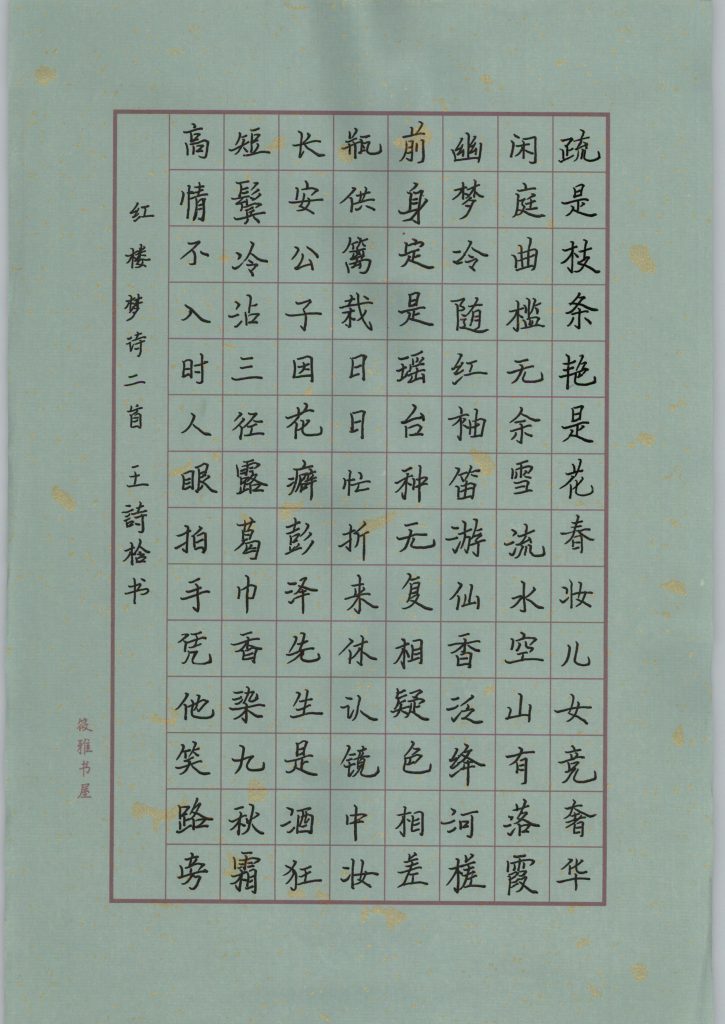 疏是枝条艳是花春妆儿女竞奢华
闲庭曲槛无余雪流水空山有落霞
幽梦冷随红袖笛游仙香泛绛河槎
前身定是瑶台种无复相疑色相差
瓶供篱栽日日忙折来休认镜中妆
长安公子因花癖彭泽先生是酒狂
短鬓冷沾三径露葛巾香染九秋霜
高情不入时人眼拍手凭他笑路旁
红楼梦诗二首 王詩书
筱雅书屋